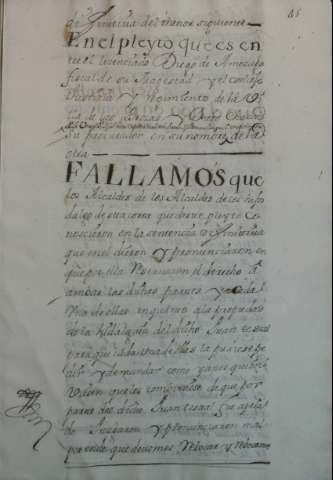 45
definitiva del thenor siguiente
En el pleyto que es en
tre el licenciado Diego de Amezaga
fiscal de su Magestad y el concejo
Justicia y Regimiento de la Vi
lla de los
su procurador en su nombre de la
otra
FALLAMOS que
los Alcaldes de los hijos
dalgo de esta corte que de este pleyto co
nocieron en la sentencia difinitiva
que en el dieron y pronunciaron en
que por ella Reservaron el derecho a
ambas las dichas partes y a cada
Una de ellas en quanto a la propiedad
de la hidalguia del dicho Juan
para que cada una de ellas la pudiese pe
dir y demandar como y ante quien
Viesen que les combiene de que por
parte del dicho Juan fue apela
do Juzgaron y pronunciaron mal
por ende que devemos Revocar y Revocamos